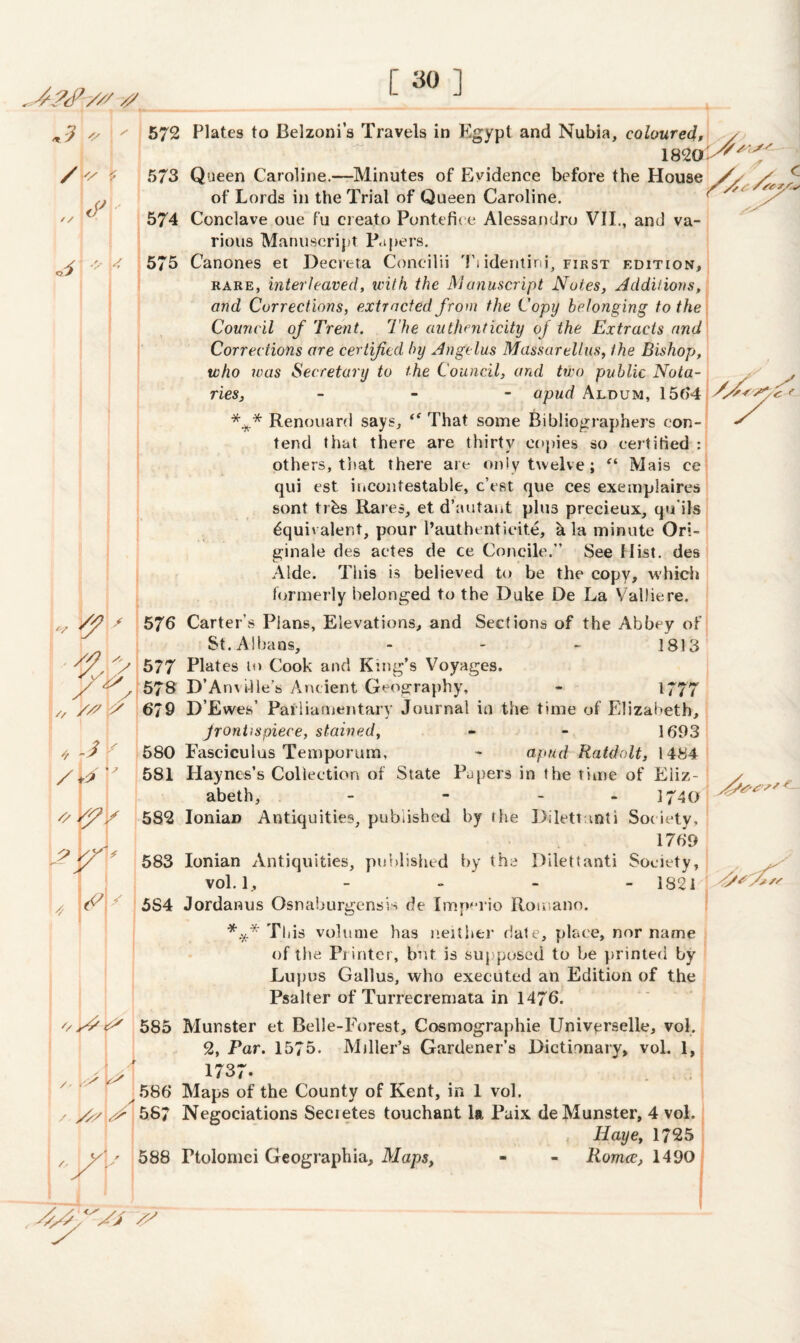 [ 30 ]
572 Plates to Belzoni's Travels in Egypt and Nubia, coloured,
1820
573 Queen Caroline.—Minutes of Evidence before the House
of Lords in the Trial of Queen Caroline.
574 Conclave oue fu creato Pontefice Alessandro VII., and va-
rious Manuscript Papers.
575 Canones et Decreta Concilii Tridentini, FIRST EDITION,
RARE, interleaved, with the Manuscript Notes, Additions,
and Corrections, extracted from the Copy belonging to the
Council of Trent. The authenticity of the Extracts and
Corrections are certified by Angelus Massarellus, the Bishop,
who was Secretary to the Council, and two public Nota-
ries, - - - apud ALDUM, 1564
*** Renouard says, “ That some Bibliographers con-
tend that there are thirty copies so certified :
others, that there are only twelve ; “ Mais ce
qui est incontestable, c'est que ces exemplaires
sont très Rares, et d'autant plus precieux, qu'ils
équivalent, pour l'authenticité, à la minute Ori-
ginale des actes de ce Concile.” See Hist. des
Alde. This is believed to be the copy, which
formerly belonged to the Duke De La Valliere.
576 Carter's Plans, Elevations, and Sections of the Abbey of
St. Albans, - - - 1813
577 Plates to Cook and King's Voyages.
578 D'Anville's Ancient Geography, - 1777
679 D'Ewes' Parliamentary Journal in the time of Elizabeth,
frontispiece, stained, - - 1693
580 Fasciculus Temporum, - apud Ratdolt, 1484
581 Haynes's Collection of State Papers in the time of Eliz-
abeth, - - - - 1740
582 Ionian Antiquities, published by the Dilettanti Society,
1769
583 Ionian Antiquities, published by the Dilettanti Society,
vol. 1, - - - - 1821
584 Jordanus Osnaburgensis de Imperio Romano.
*** This volume has neither date, place, nor name
of the Printer, but is supposed to be printed by
Lupus Gallus, who executed an Edition of the
Psalter of Turrecremata in 1476.
585 Munster et Belle-Forest, Cosmographie Universelle, vol.
2, Par. 1575. Miller's Gardener's Dictionary, vol. 1,
1737.
586 Maps of the County of Kent, in 1 vol.
587 Negociations Secretes touchant la Paix de Munster, 4 vol.
Haye, 1725
588 Ptolomei Geographia, Maps, - - Romæ, 1490